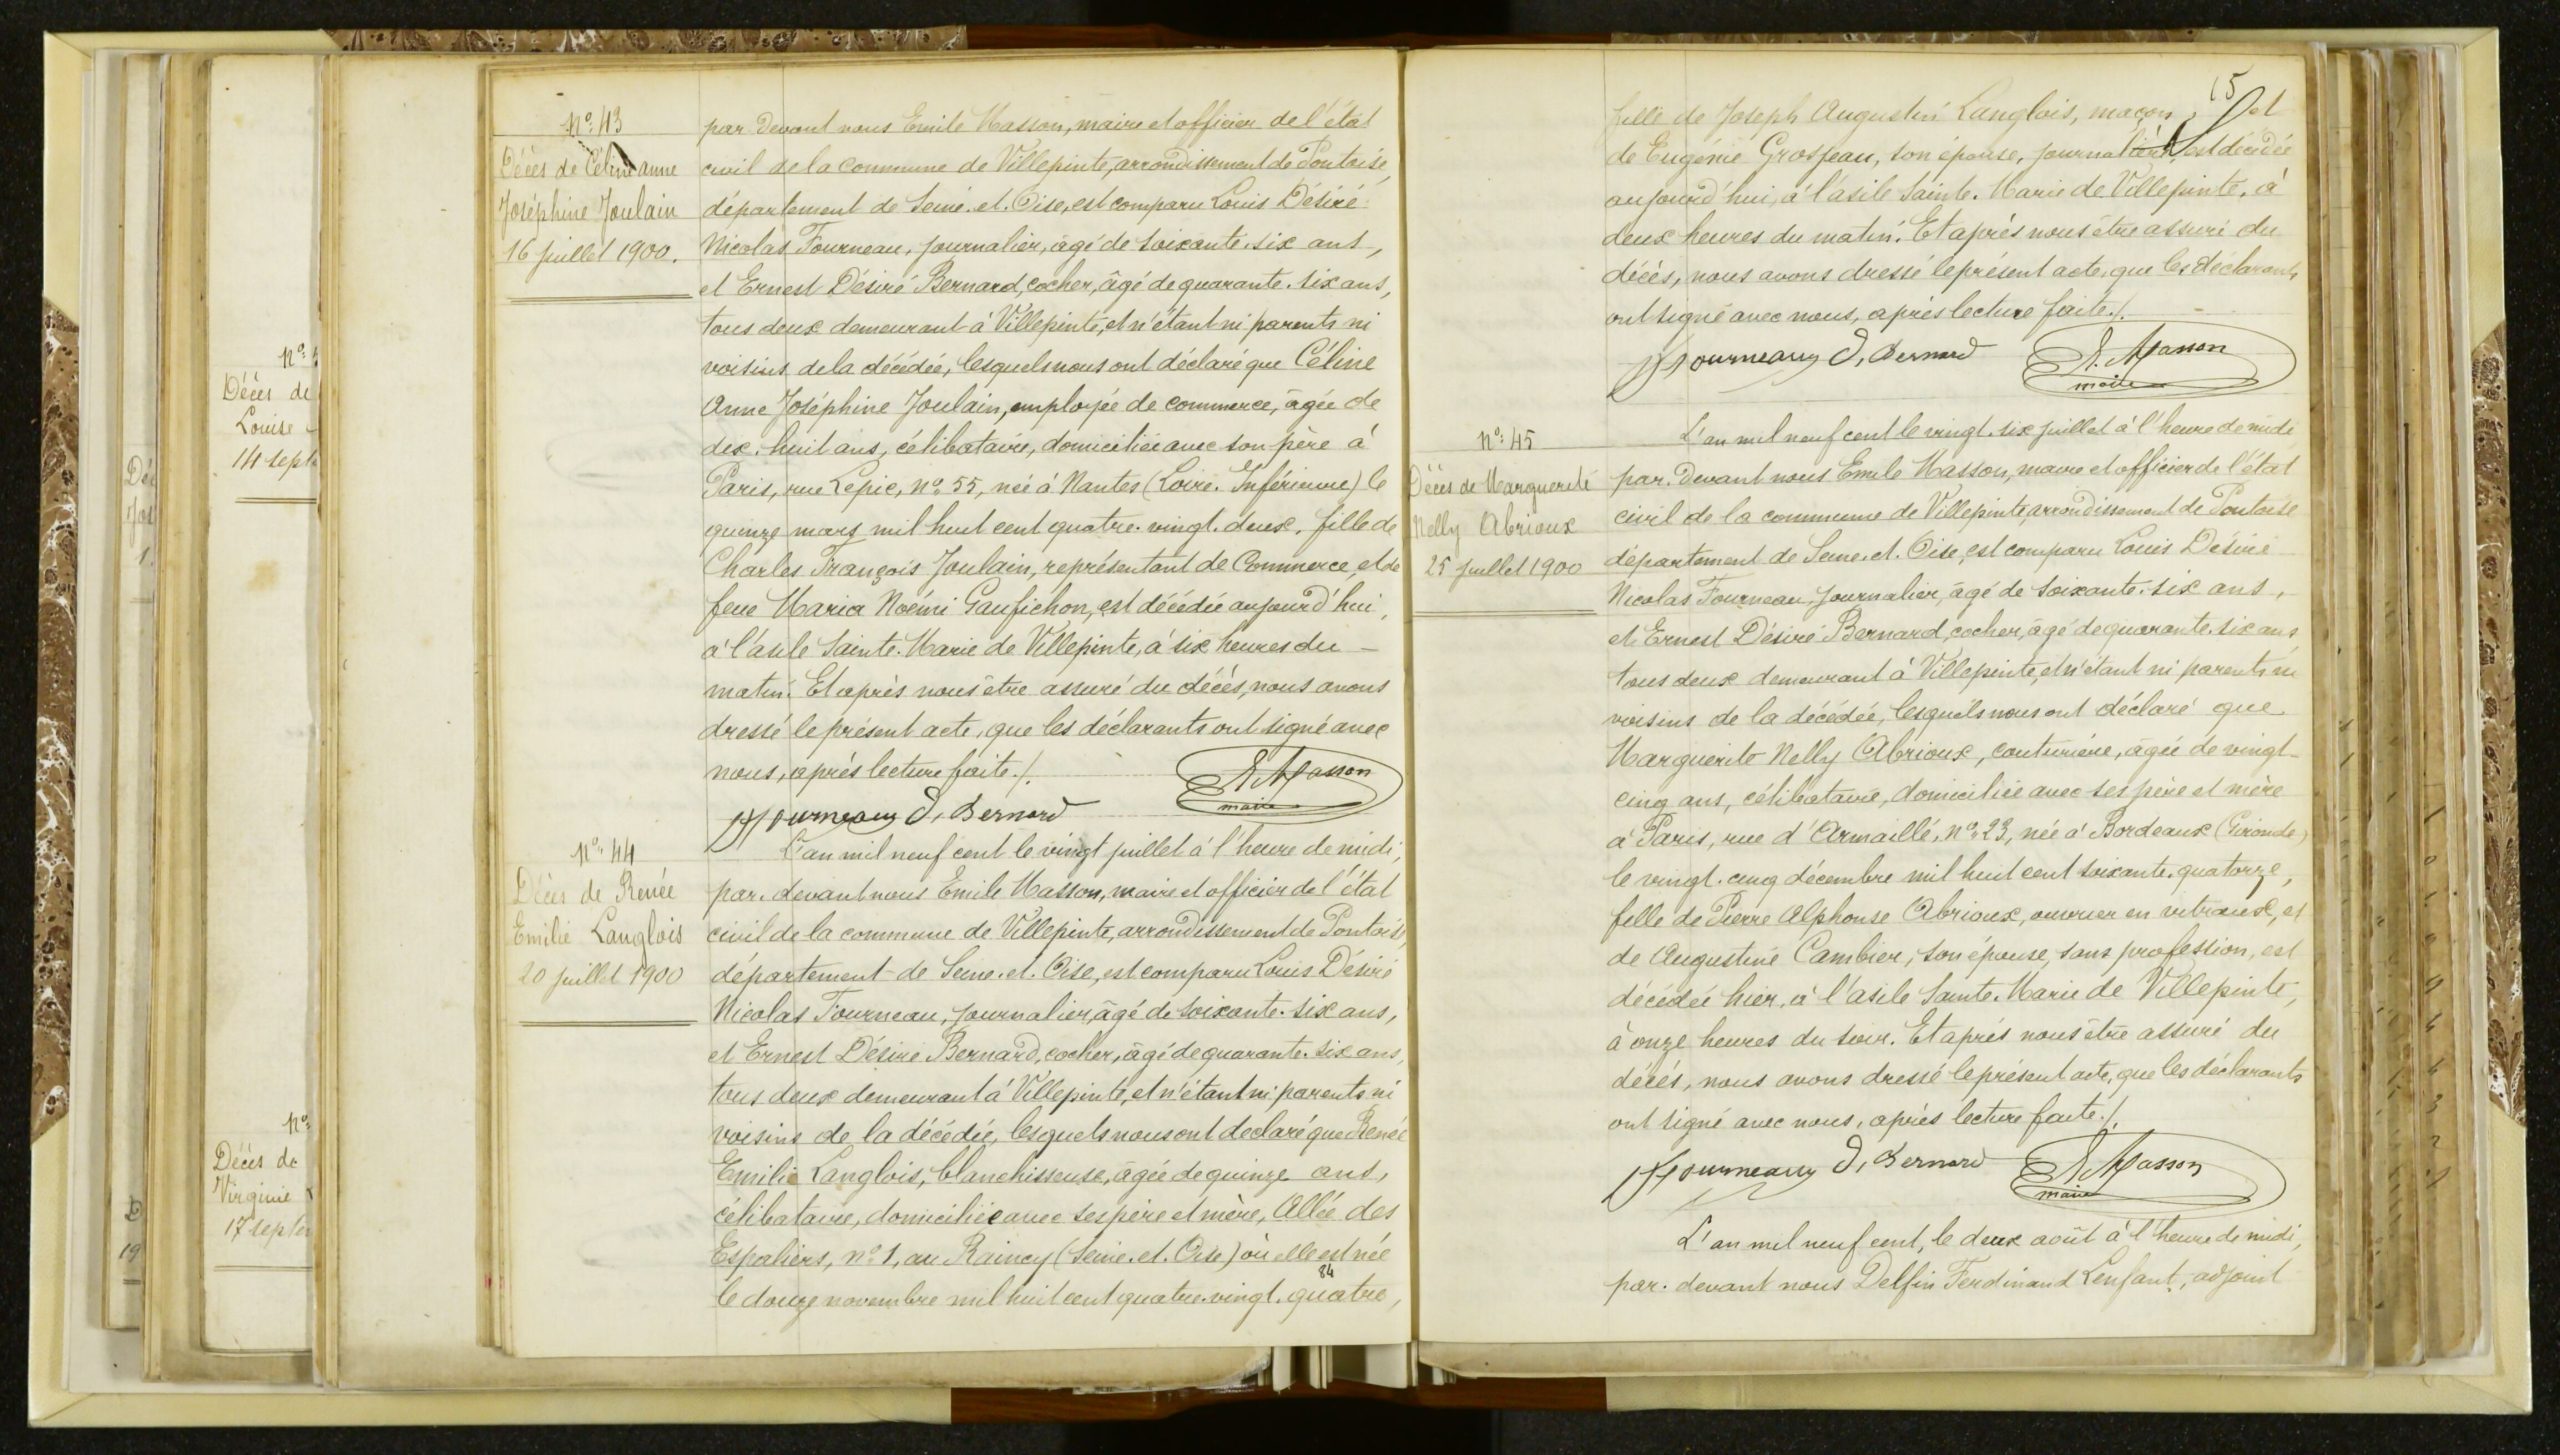 Nº 43
Décès de Céline Anne
Joséphine Joulain
16 juillet 1900.
par devant nous Emile Masson, maire et officier de l'état
civil de la commune de Villepinte, arrondissement de Pontoise,
département de Seine-et-Oise, est comparu Louis Désiré
Nicolas Fourneau, journalier, âgé de soixante-six ans,
et Ernest Désiré Bernard, cocher, âgé de quarante-six ans,
tous deux demeurant à Villepinte, et n'étant ni parents ni
voisins de la décédée, lesquels nous ont déclaré que Céline
Anne Joséphine Joulain, employée de commerce, âgée de
dix-huit ans, célibataire, domiciliée avec son père à
Paris, rue Lepic, nº 55, née à Nantes (Loire-Inférieure) le
quinze mars mil huit cent quatre-vingt-deux, fille de
Charles François Joulain, représentant de Commerce, et de
feue Maria Noémi Gaufichon, est décédée aujourd'hui,
à l'asile Sainte-Marie de Villepinte, à six heures du
matin. Et après nous être assuré du décès, nous avons
dressé le présent acte, que les déclarants ont signé avec
nous, après lecture faite./.
Fourneaux D, Bernard
E. Masson
maire
Nº 44
Décès de Renée
Emilie Langlois
20 juillet 1900
L'an mil neuf cent le vingt juillet à l'heure de midi,
par-devant nous Emile Masson, maire et officier de l'état
civil de la commune de Villepinte, arrondissement de Pontoise,
département de Seine-et-Oise, est comparu Louis Désiré
Nicolas Fourneau, journalier, âgé de soixante-six ans,
et Ernest Désiré Bernard, cocher, âgé de quarante-six ans,
tous deux demeurant à Villepinte, et n'étant ni parents ni
voisins de la décédée, lesquels nous ont declaré que Renée
Emilie Langlois, blanchisseuse, âgée de quinze ans,
célibataire, domiciliée avec ses père et mère, Allée des
Espaliers, nº 1, au Raincy (Seine-et-Oise) où elle est née
84
le douze novembre mil huit cent quatre-vingt-quatre,
15
fille de Joseph Augustin Langlois, maçon, et
de Eugénie Grosjean, son épouse, journalière, est décédée
aujourd'hui, à l'asile Sainte-Marie de Villepinte, à
deux heures du matin. Et après nous être assuré du
décès, nous avons dressé le présent acte, que les déclarants
ont signé avec nous, après lecture faite./.
Fourneaux D, Bernard
E. Masson
maire
Nº 45
Décès de Marguerite
Nelly Abrioux
25 juillet 1900
L'an mil neuf cent le vingt-six juillet à l'heure de midi
par-devant nous Emile Masson, maire et officier de l'état
civil de la commune de Villepinte, arrondissement de Pontoise
département de Seine-et-Oise, est comparu Louis Désiré
Nicolas Fourneau, journalier, âgé de soixante-six ans,
et Ernest Désiré Bernard, cocher, âgé de quarante-six ans,
tous deux demeurant à Villepinte, et n'étant ni parents ni
voisins de la décédée, lesquels nous ont déclaré que
Marguerite Nelly Abrioux, couturière, âgée de vingt-
cinq ans, célibataire, domiciliée avec ses père et mère
à Paris, rue d'Armaillé, nº 23, née à Bordeaux (Gironde)
le vingt-cinq décembre mil huit cent soixante-quatorze,
fille de Pierre Alphonse Abrioux, ouvrier en vitraux, et
de Augustine Cambier, son épouse, sans profession, est
décédée hier, à l'asile Sainte-Marie de Villepinte,
à onze heures du soir. Et après nous être assuré du
décès, nous avons dressé le présent acte, que les déclarants
ont signé avec nous, après lecture faite./.
Fourneaux D, Bernard
E. Masson
maire
L'an mil neuf cent, le deux août à l'heure de midi,
par-devant nous Delfin Ferdinand Lenfant, adjoint
Nº
Décès de
Louise
14 sept
Nº
Décès de
Virginie
17 septe